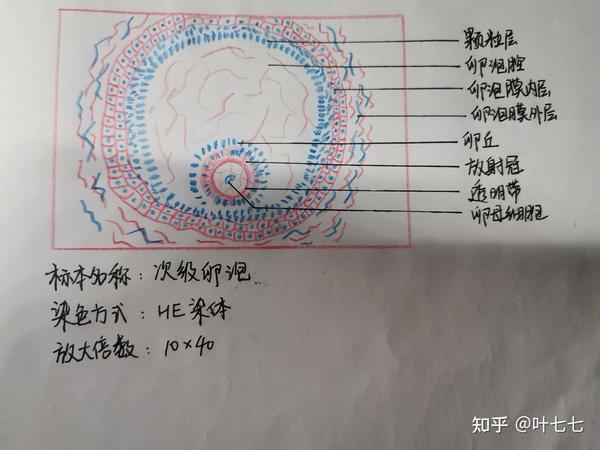 颗粒层
卵泡腔
卵泡膜内层
卵泡膜外层
卵丘
放射冠
透明带
卵母细胞
标本名称：次级卵泡
染色方式：HE染体
放大倍数：10×40
知乎 @叶七七